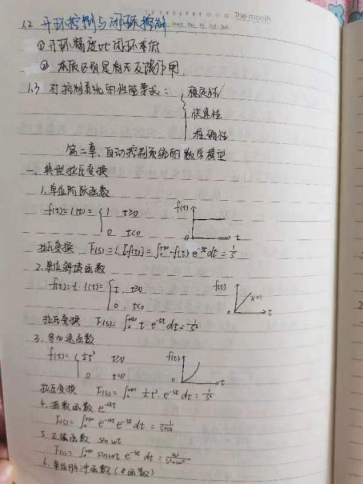 The month
1.2 开环控制与闭环控制
①开环精度比闭环本低
② 本质区别是有无反馈作用.
1.3 对控制系统的性能要求: { 稳定性
快速性
准确性
第二章. 自动控制系统的数学模型
一. 典型拉氏变换
1. 单位阶跃函数
f(t)=1(t)= { 1 t≥0
0 t<0
f(t)
t
拉氏变换 F(s)=L[f(t)]=∫₀^{+∞} f(t) e^{-st} dt = 1/s
2. 单位斜坡函数
f(t)=t·1(t)= { t, t≥0
0. t<0
f(t)
t
拉氏变换 F(s)=∫₀^{+∞} t·e^{-st} dt = 1/s²
3. 等加速函数
f(t)= { ½t² t≥0
0 t<0
f(t)
t
拉氏变换 F(s)=∫₀^{+∞} ½t²·e^{-st} dt = 1/s³
4. 指数函数 e^{-at}
F(s)=∫₀^{+∞} e^{-at} e^{-st} dt = 1/(s+a)
5. 正弦函数 sin wt
F(s)=∫₀^{+∞} sin wt e^{-st} dt = w/(s²+w²)
6. 单位脉冲函数 (δ函数)